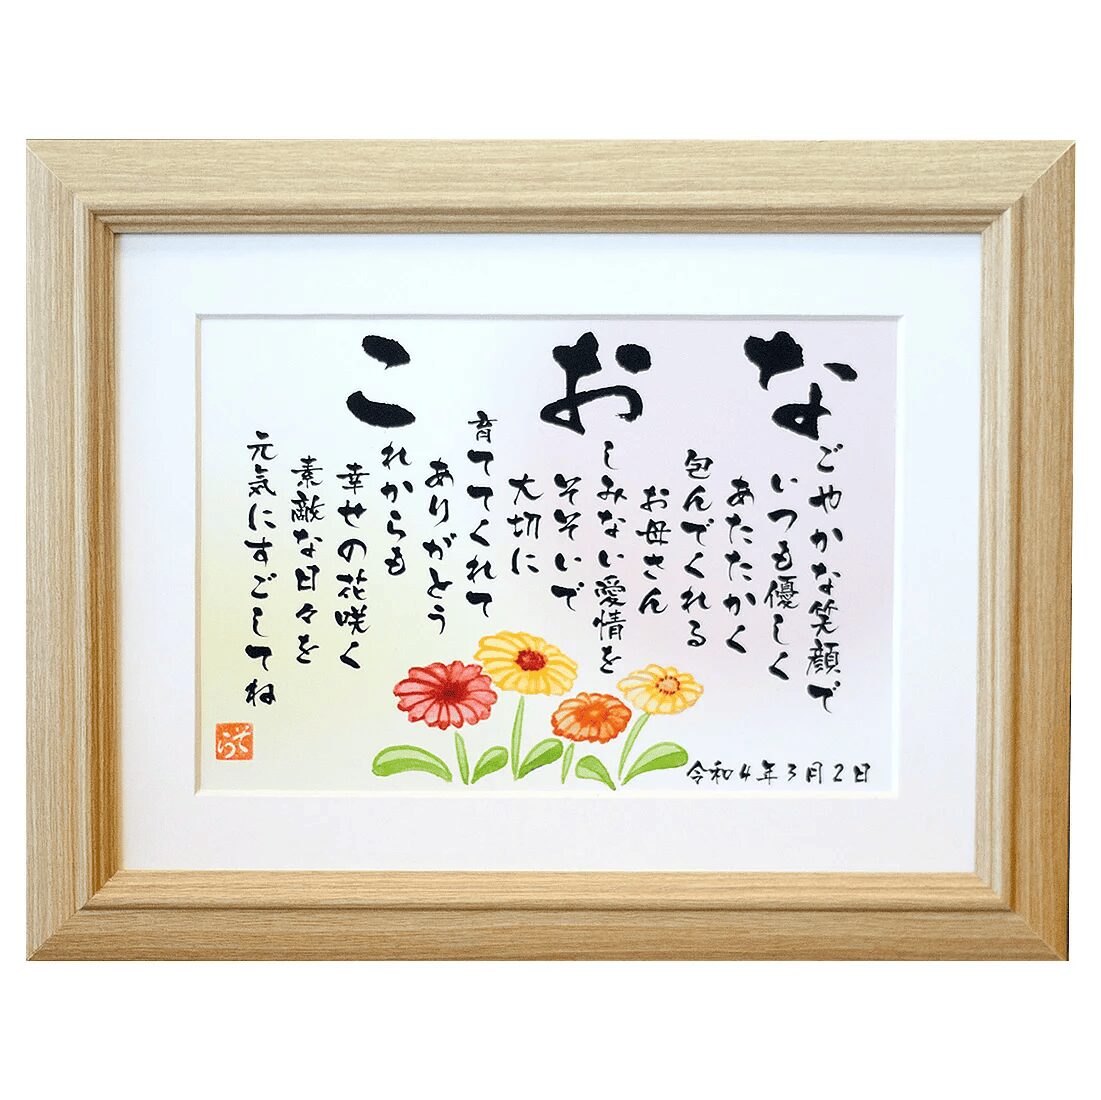 なごやかな笑顔で
いつも優しく
あたたかく
包んでくれる
お母さん
おしみない愛情を
そそいで
大切に
育ててくれて
ありがとう
これからも
幸せの花咲く
素敵な日々を
元気にすごしてね
令和4年3月2日
そら